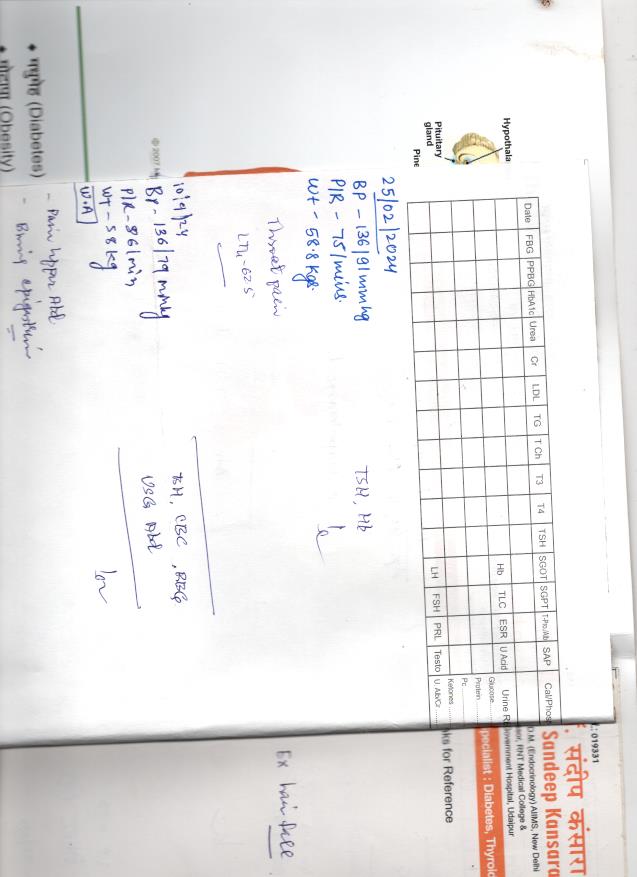 : 019331
संदीप कंसारा
Sandeep Kansara
D.M. (Endocrinology) AIIMS, New Delhi
RNT Medical College &
Government Hospital, Udaipur
pecialist : Diabetes, Thyroid
ks for Reference
Date FBG PPBG HbA1c Urea Cr LDL TG T Ch T3 T4 TSH SGOT SGPT T-Pro./Alb SAP Cal/Phos
Hb TLC ESR U Acid Urine R
Glucose
Protein
Pc
Ketones
LH FSH PRL Testo U. Alb/Cr
Hypothala
Pituitary
gland
Pine
25/02/2024
BP - 136/91 mmhg
P/R - 75/mins.
Wt - 58.8 kgs.
TSH, Hb
Throat pain
Ex hair fall
10/9/24
BP - 136/79 mmhg
P/R - 86/min
WT - 58 kg
W.A
TSH, CBC, RBG
USG Abd
- Pain upper Abd
- Burning epigastrium
© 2007
• मधुमेह (Diabetes)
• मोटापा (Obesity)